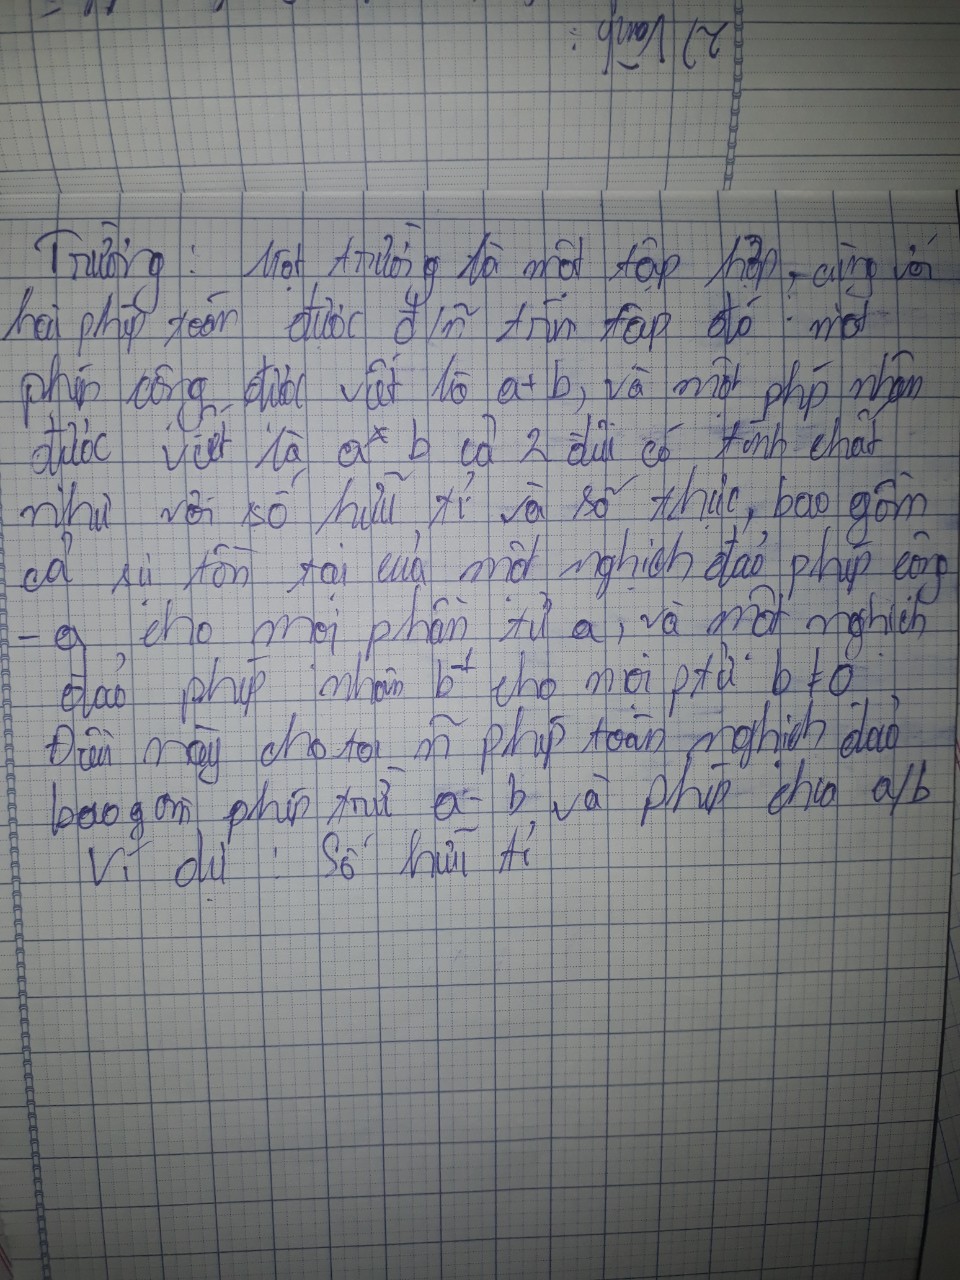 2) Vành :
Trường : Một trường là một tập hợp, cùng với
hai phép toán được đ/n trên tập đó : một
phép cộng được viết là a+b, và một phép nhân
được viết là a* b cả 2 đều có tính chất
như với số hữu tỉ và số thực, bao gồm
cả sự tồn tại của một nghịch đảo phép cộng
-a cho mọi phần tử a, và một nghịch
đảo phép nhân b⁻¹ cho mọi ptử b≠0
Điều này cho ta phép toán nghịch đảo
bao gồm phép trừ a-b và phép chia a/b
Ví dụ : Số hữu tỉ